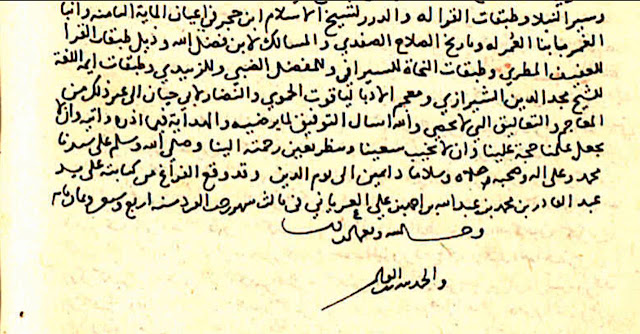 وسير النبلا وطبقات القرا له والدرر لشيخ الاسلام ابن حجر في اعيان الماية الثامنة وانبا
الغمر بابنا العمر له وتاريخ الصلاح الصفدي والمسالك لابن فضل الله وذيل طبقات القرا
للعفيف المطري وطبقات النحاة للسيرافي وللمفضل الضبي وللزبيدي وطبقات ايمة اللغة
للشيخ مجد الدين الشيرازي ومعجم الادبا لياقوت الحموي والنضار لابي حيان الى غير ذلك من
المعاجر والتعاليق التي لا تحصى والله اسال التوفيق لما يرضيه والهداية فيما اذره واتيه وان لا
يجعل علمنا حجة علينا وان لا يخيب سعينا وسطر بعين رحمته الينا وصلى الله وسلم على سيدنا
محمد وعلى اله وصحبه صلاه وسلاما دايمين الى يوم الدين وقد وقع الفراغ من كتابته على يد
عبد القادر بن محمد بن عبد الله بن ابراهيم بن علي في ثالث شهر رجب الفرد سنة اربع وسبعين وثمانمايه
ونعم
والحمد لله رب العالمين